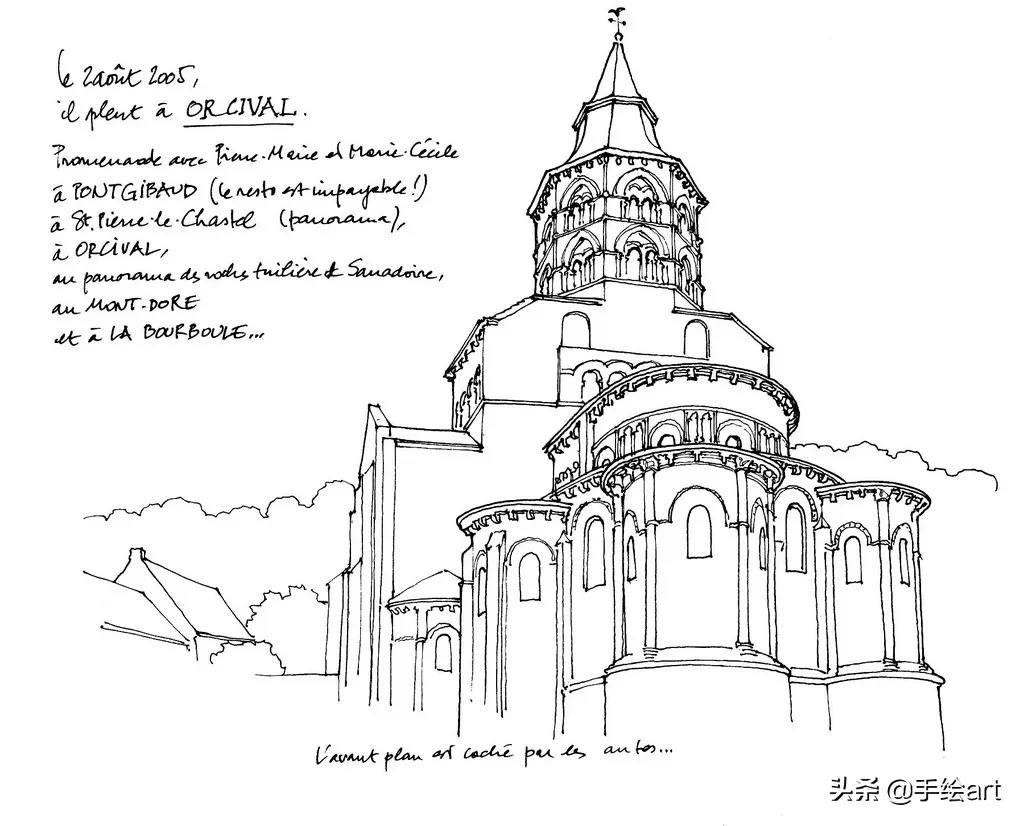 le 2 août 2005,
il pleut à ORCIVAL.
Promenade avec Pierre-Marie et Marie-Cécile
à PONTGIBAUD (le resto est impayable !)
à St. Pierre-le-Chastel (panorama),
à ORCIVAL,
au panorama des roches tuilière & Sanadoire,
au MONT-DORE
et à LA BOURBOULE...
L'avant plan est caché par les autos...
头条 @手绘art